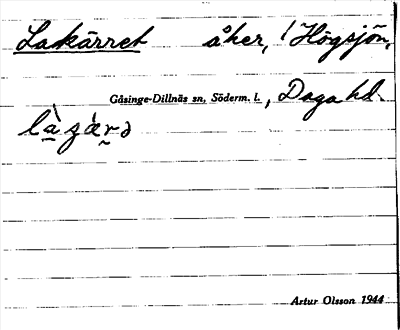 Lakärret åker, Högsjön,
Gåsinge-Dillnäs sn, Söderm. l., Daga hd.
Artur Olsson 1944